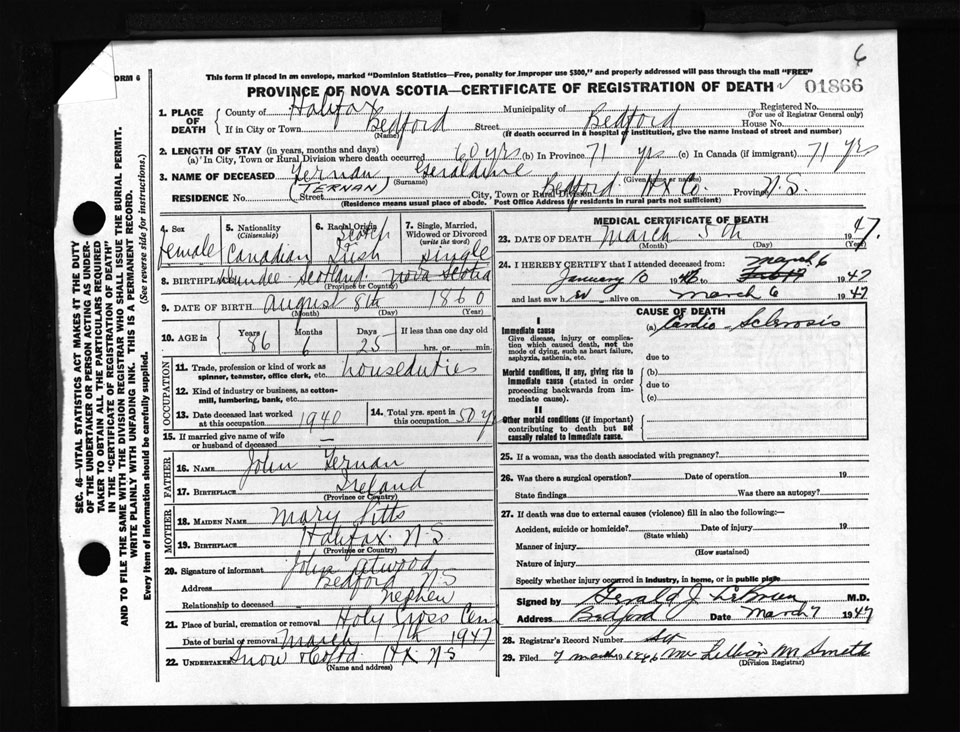 6
ORM 6
This form if placed in an envelope, marked "Dominion Statistics—Free, penalty for improper use $300," and properly addressed will pass through the mail "FREE"
PROVINCE OF NOVA SCOTIA—CERTIFICATE OF REGISTRATION OF DEATH 01866
1. PLACE OF DEATH County of Halifax Municipality of Bedford Registered No.
(For use of Registrar General only)
If in City or Town Bedford Street House No.
(Name) (If death occurred in a hospital or institution, give the name instead of street and number)
2. LENGTH OF STAY (in years, months and days)
(a) In City, Town or Rural Division where death occurred 60 yrs (b) In Province 71 yrs (c) In Canada (if immigrant) 71 yrs
3. NAME OF DECEASED Ternan Geraldine
(Surname) (Given name or names)
(TERNAN)
RESIDENCE No. Street City, Town or Rural Division Bedford Hx Co. Province N.S.
(Residence means usual place of abode. Post Office Address for residents in rural parts not sufficient)
4. Sex Female
5. Nationality (Citizenship) Canadian
6. Racial Origin Scotch Irish
7. Single, Married, Widowed or Divorced (write the word) Single
8. BIRTHPLACE Dundee Scotland. Nova Scotia
(Province or Country)
9. DATE OF BIRTH August 8th 1860
(Month) (Day) (Year)
10. AGE in Years 86 Months 6 Days 25 If less than one day old hrs. or min.
OCCUPATION
11. Trade, profession or kind of work as spinner, teamster, office clerk, etc. houseduties
12. Kind of industry or business, as cotton-mill, lumbering, bank, etc.
13. Date deceased last worked at this occupation 1940
14. Total yrs. spent in this occupation 50 yr
15. If married give name of wife or husband of deceased —
FATHER
16. NAME John Ternan
17. BIRTHPLACE Ireland
(Province or Country)
MOTHER
18. MAIDEN NAME Mary Pitts
19. BIRTHPLACE Halifax N.S.
(Province or Country)
20. Signature of informant John Atwood
Address Bedford N.S
Relationship to deceased nephew
21. Place of burial, cremation or removal Holy Cross Cem
Date of burial or removal March 7th 1947
22. UNDERTAKER Snow & Co Ltd. Hx N S
(Name and address)
MEDICAL CERTIFICATE OF DEATH
23. DATE OF DEATH March 5th 1947.
(Month) (Day) (Year)
24. I HEREBY CERTIFY that I attended deceased from:
March 6
January 10 1946 to 1947
and last saw h er alive on March 6 1947
CAUSE OF DEATH
I
Immediate cause
Give disease, injury or complication which caused death, not the mode of dying, such as heart failure, asphyxia, asthenia, etc.
(a) Cardio-Sclerosis
due to
Morbid conditions, if any, giving rise to immediate cause (stated in order proceeding backwards from immediate cause).
(b)
due to
(c)
II
Other morbid conditions (if important) contributing to death but not causally related to immediate cause.
25. If a woman, was the death associated with pregnancy?
26. Was there a surgical operation? Date of operation 19
State findings Was there an autopsy?
27. If death was due to external causes (violence) fill in also the following:—
Accident, suicide or homicide? Date of injury 19
(State which)
Manner of injury
(How sustained)
Nature of injury
Specify whether injury occurred in industry, in home, or in public place
Signed by Gerald J. LeBrun M.D.
Address Bedford Date March 7 1947
28. Registrar's Record Number
29. Filed 7 march Lillian M Smeth
(Division Registrar)
SEC. 46—VITAL STATISTICS ACT MAKES IT THE DUTY
OF THE UNDERTAKER OR PERSON ACTING AS UNDER-
TAKER TO OBTAIN ALL THE PARTICULARS REQUIRED
IN THE "CERTIFICATE OF REGISTRATION OF DEATH"
AND TO FILE THE SAME WITH THE DIVISION REGISTRAR WHO SHALL ISSUE THE BURIAL PERMIT.
WRITE PLAINLY WITH UNFADING INK. THIS IS A PERMANENT RECORD.
Every item of information should be carefully supplied. (See reverse side for instructions.)